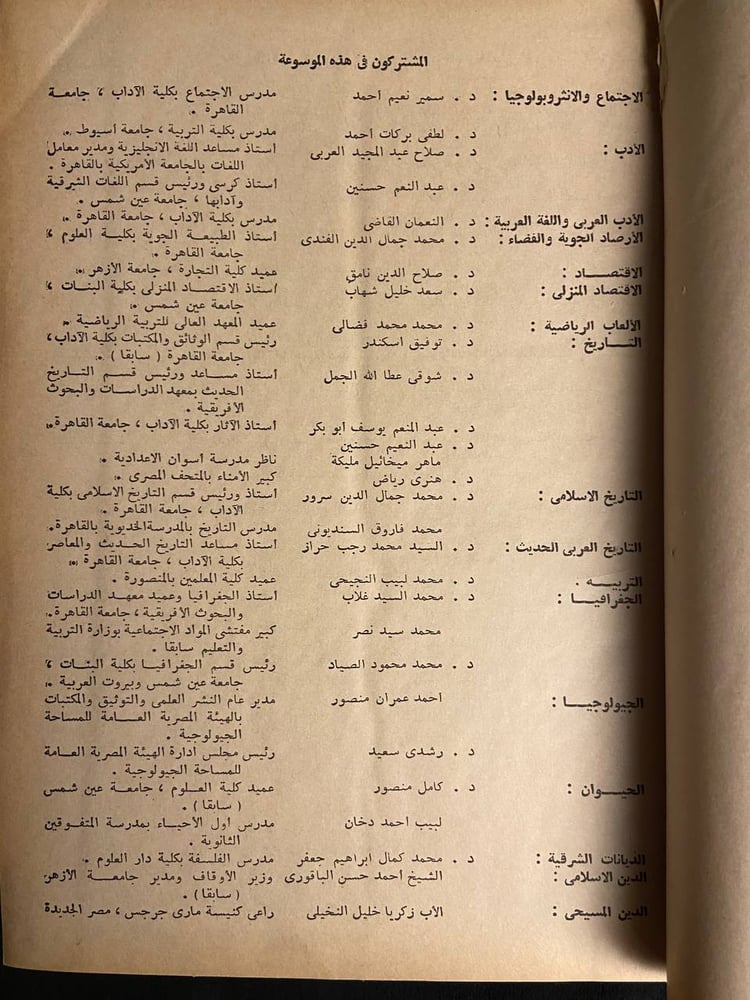 المشتركون فى هذه الموسوعة
الاجتماع والانثروبولوجيا : د . سمير نعيم احمد مدرس الاجتماع بكلية الآداب ، جامعة
القاهرة .
د . لطفى بركات احمد مدرس بكلية التربية ، جامعة أسيوط .
الأدب : د . صلاح عبد المجيد العربى أستاذ مساعد اللغة الانجليزية ومدير معامل
اللغات بالجامعة الأمريكية بالقاهرة .
د . عبد النعم حسنين أستاذ كرسى ورئيس قسم اللغات الشرقية
وآدابها ، جامعة عين شمس .
الأدب العربى واللغة العربية : د . النعمان القاضى مدرس بكلية الآداب ، جامعة القاهرة .
الأرصاد الجوية والفضاء : د . محمد جمال الدين الفندى أستاذ الطبيعة الجوية بكلية العلوم ،
جامعة القاهرة .
الاقتصاد : د . صلاح الدين نامق عميد كلية التجارة ، جامعة الأزهر .
الاقتصاد المنزلى : د . سعد خليل شهاب أستاذ الاقتصاد المنزلى بكلية البنات ،
جامعة عين شمس .
الألعاب الرياضية : د . محمد محمد فضالى عميد المعهد العالى للتربية الرياضية .
التاريخ : د . توفيق اسكندر رئيس قسم الوثائق والمكتبات بكلية الآداب ،
جامعة القاهرة ( سابقا ) .
د . شوقى عطا الله الجمل أستاذ مساعد ورئيس قسم التاريخ
الحديث بمعهد الدراسات والبحوث
الأفريقية .
د . عبد المنعم يوسف ابو بكر أستاذ الآثار بكلية الآداب ، جامعة القاهرة .
د . عبد النعيم حسنين
ماهر ميخائيل مليكة ناظر مدرسة أسوان الاعدادية .
د . هنرى رياض كبير الأمناء بالمتحف المصرى .
التاريخ الاسلامى : د . محمد جمال الدين سرور أستاذ ورئيس قسم التاريخ الاسلامى بكلية
الآداب ، جامعة القاهرة .
محمد فاروق السنديونى مدرس التاريخ بالمدرسة الخديوية بالقاهرة .
التاريخ العربى الحديث : د . السيد محمد رجب حراز أستاذ مساعد التاريخ الحديث والمعاصر
بكلية الآداب ، جامعة القاهرة .
التربيه . د . محمد لبيب النجيحى عميد كلية المعلمين بالمنصورة .
الجغرافيا : د . محمد السيد غلاب أستاذ الجغرافيا وعميد معهد الدراسات
والبحوث الأفريقية ، جامعة القاهرة .
محمد سيد نصر كبير مفتشى المواد الاجتماعية بوزارة التربية
والتعليم سابقا .
د . محمد محمود الصياد رئيس قسم الجغرافيا بكلية البنات ،
جامعة عين شمس وبيروت العربية .
الجيولوجيا : احمد عمران منصور مدير عام النشر العلمى والتوثيق والمكتبات
بالهيئة المصرية العامة للمساحة
الجيولوجية .
د . رشدى سعيد رئيس مجلس ادارة الهيئة المصرية العامة
للمساحة الجيولوجية .
الحيوان : د . كامل منصور عميد كلية العلوم ، جامعة عين شمس
( سابقا ) .
لبيب احمد دخان مدرس أول الأحياء بمدرسة المتفوقين
الثانوية .
الديانات الشرقية : د . محمد كمال ابراهيم جعفر مدرس الفلسفة بكلية دار العلوم .
الدين الاسلامى : الشيخ أحمد حسن الباقورى وزير الأوقاف ومدير جامعة الأزهر
( سابقا ) .
الدين المسيحى : الأب زكريا خليل النخيلى راعى كنيسة مارى جرجس ، مصر الجديدة